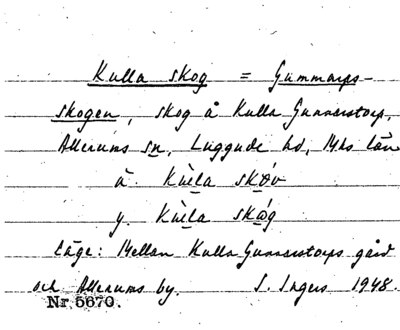 Kulla skog = Gummarps-
skogen, skog å Kulla Gunnarstorp,
Allerums sn, Luggude hd, Mhs län
ä. Kùlla skóv
y. Kùlla skǻg
Läge: Mellan Kulla Gunnarstorps gård
och Allerums by. S. Ingers 1948.
Nr 5670.